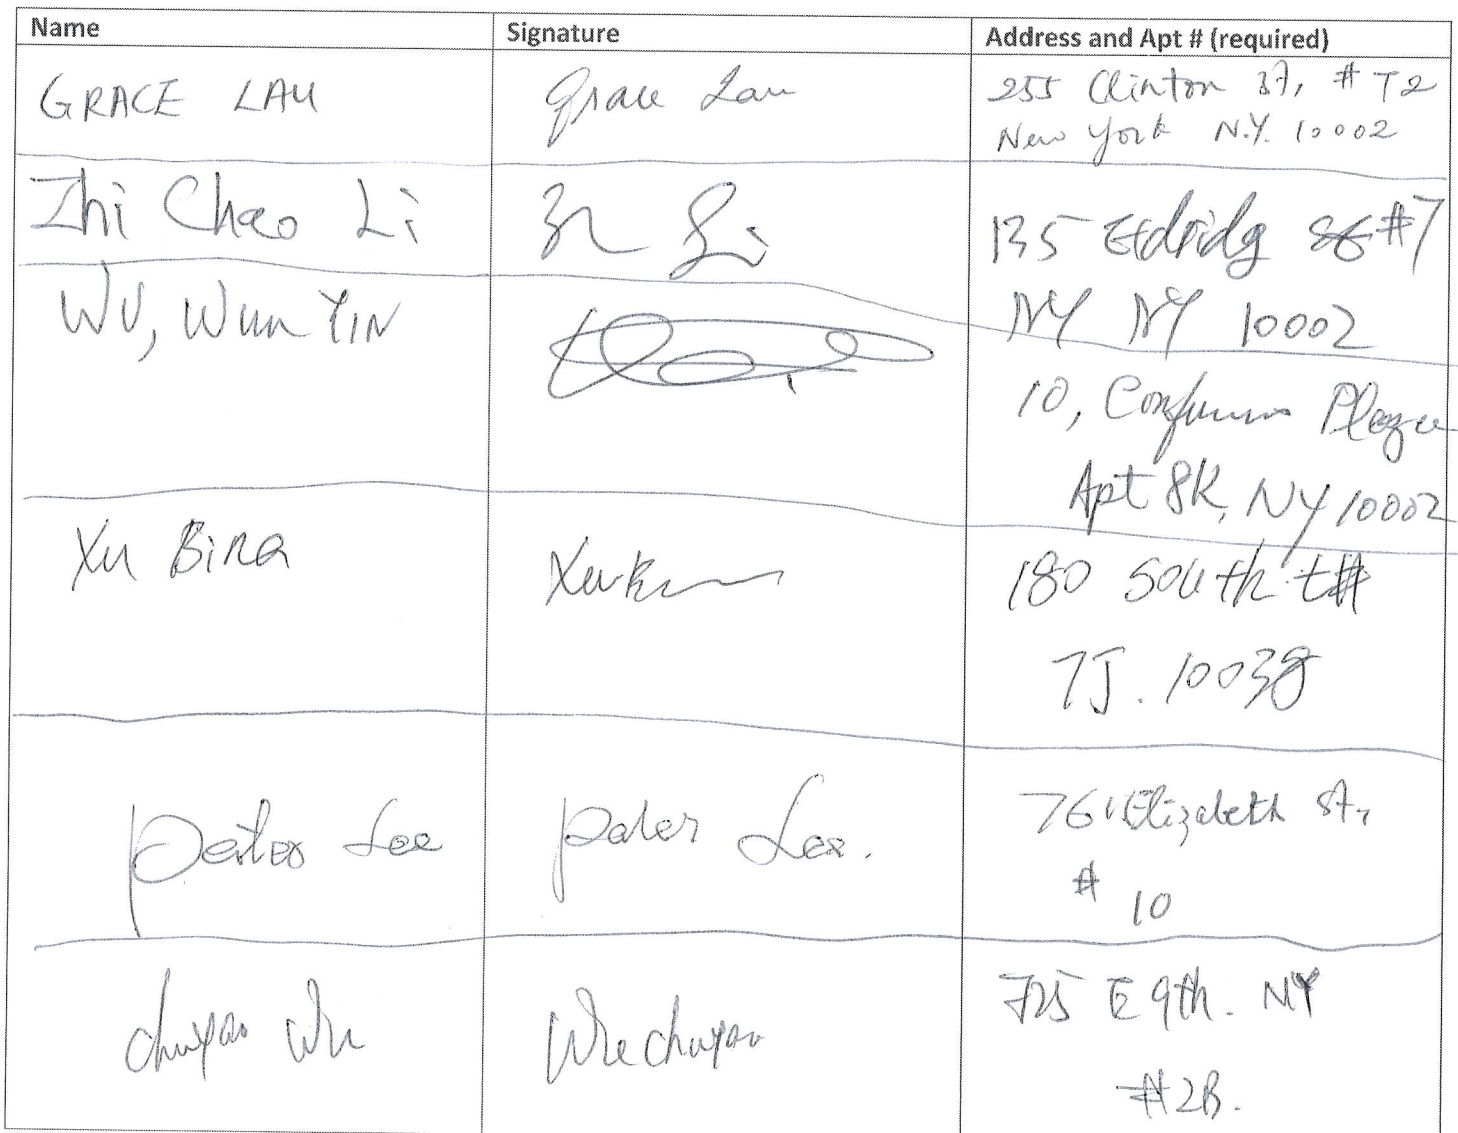 Name Signature Address and Apt # (required)
GRACE LAU Grace Lau 255 Clinton St, # T2
New York N.Y. 10002
Zhi Chao Li Li 135 Eldridg st #7
NY NY 10002
WU, Wun YIN
10, Confucius Plaza
Apt 8K, NY 10002
Xu Bing Xu 180 South t#
7J. 10038
Peter Lee Peter Lee. 76 Elizabeth St,
# 10
Chuyao Wu Wu chuyao 725 E 9th. NY
#2B.